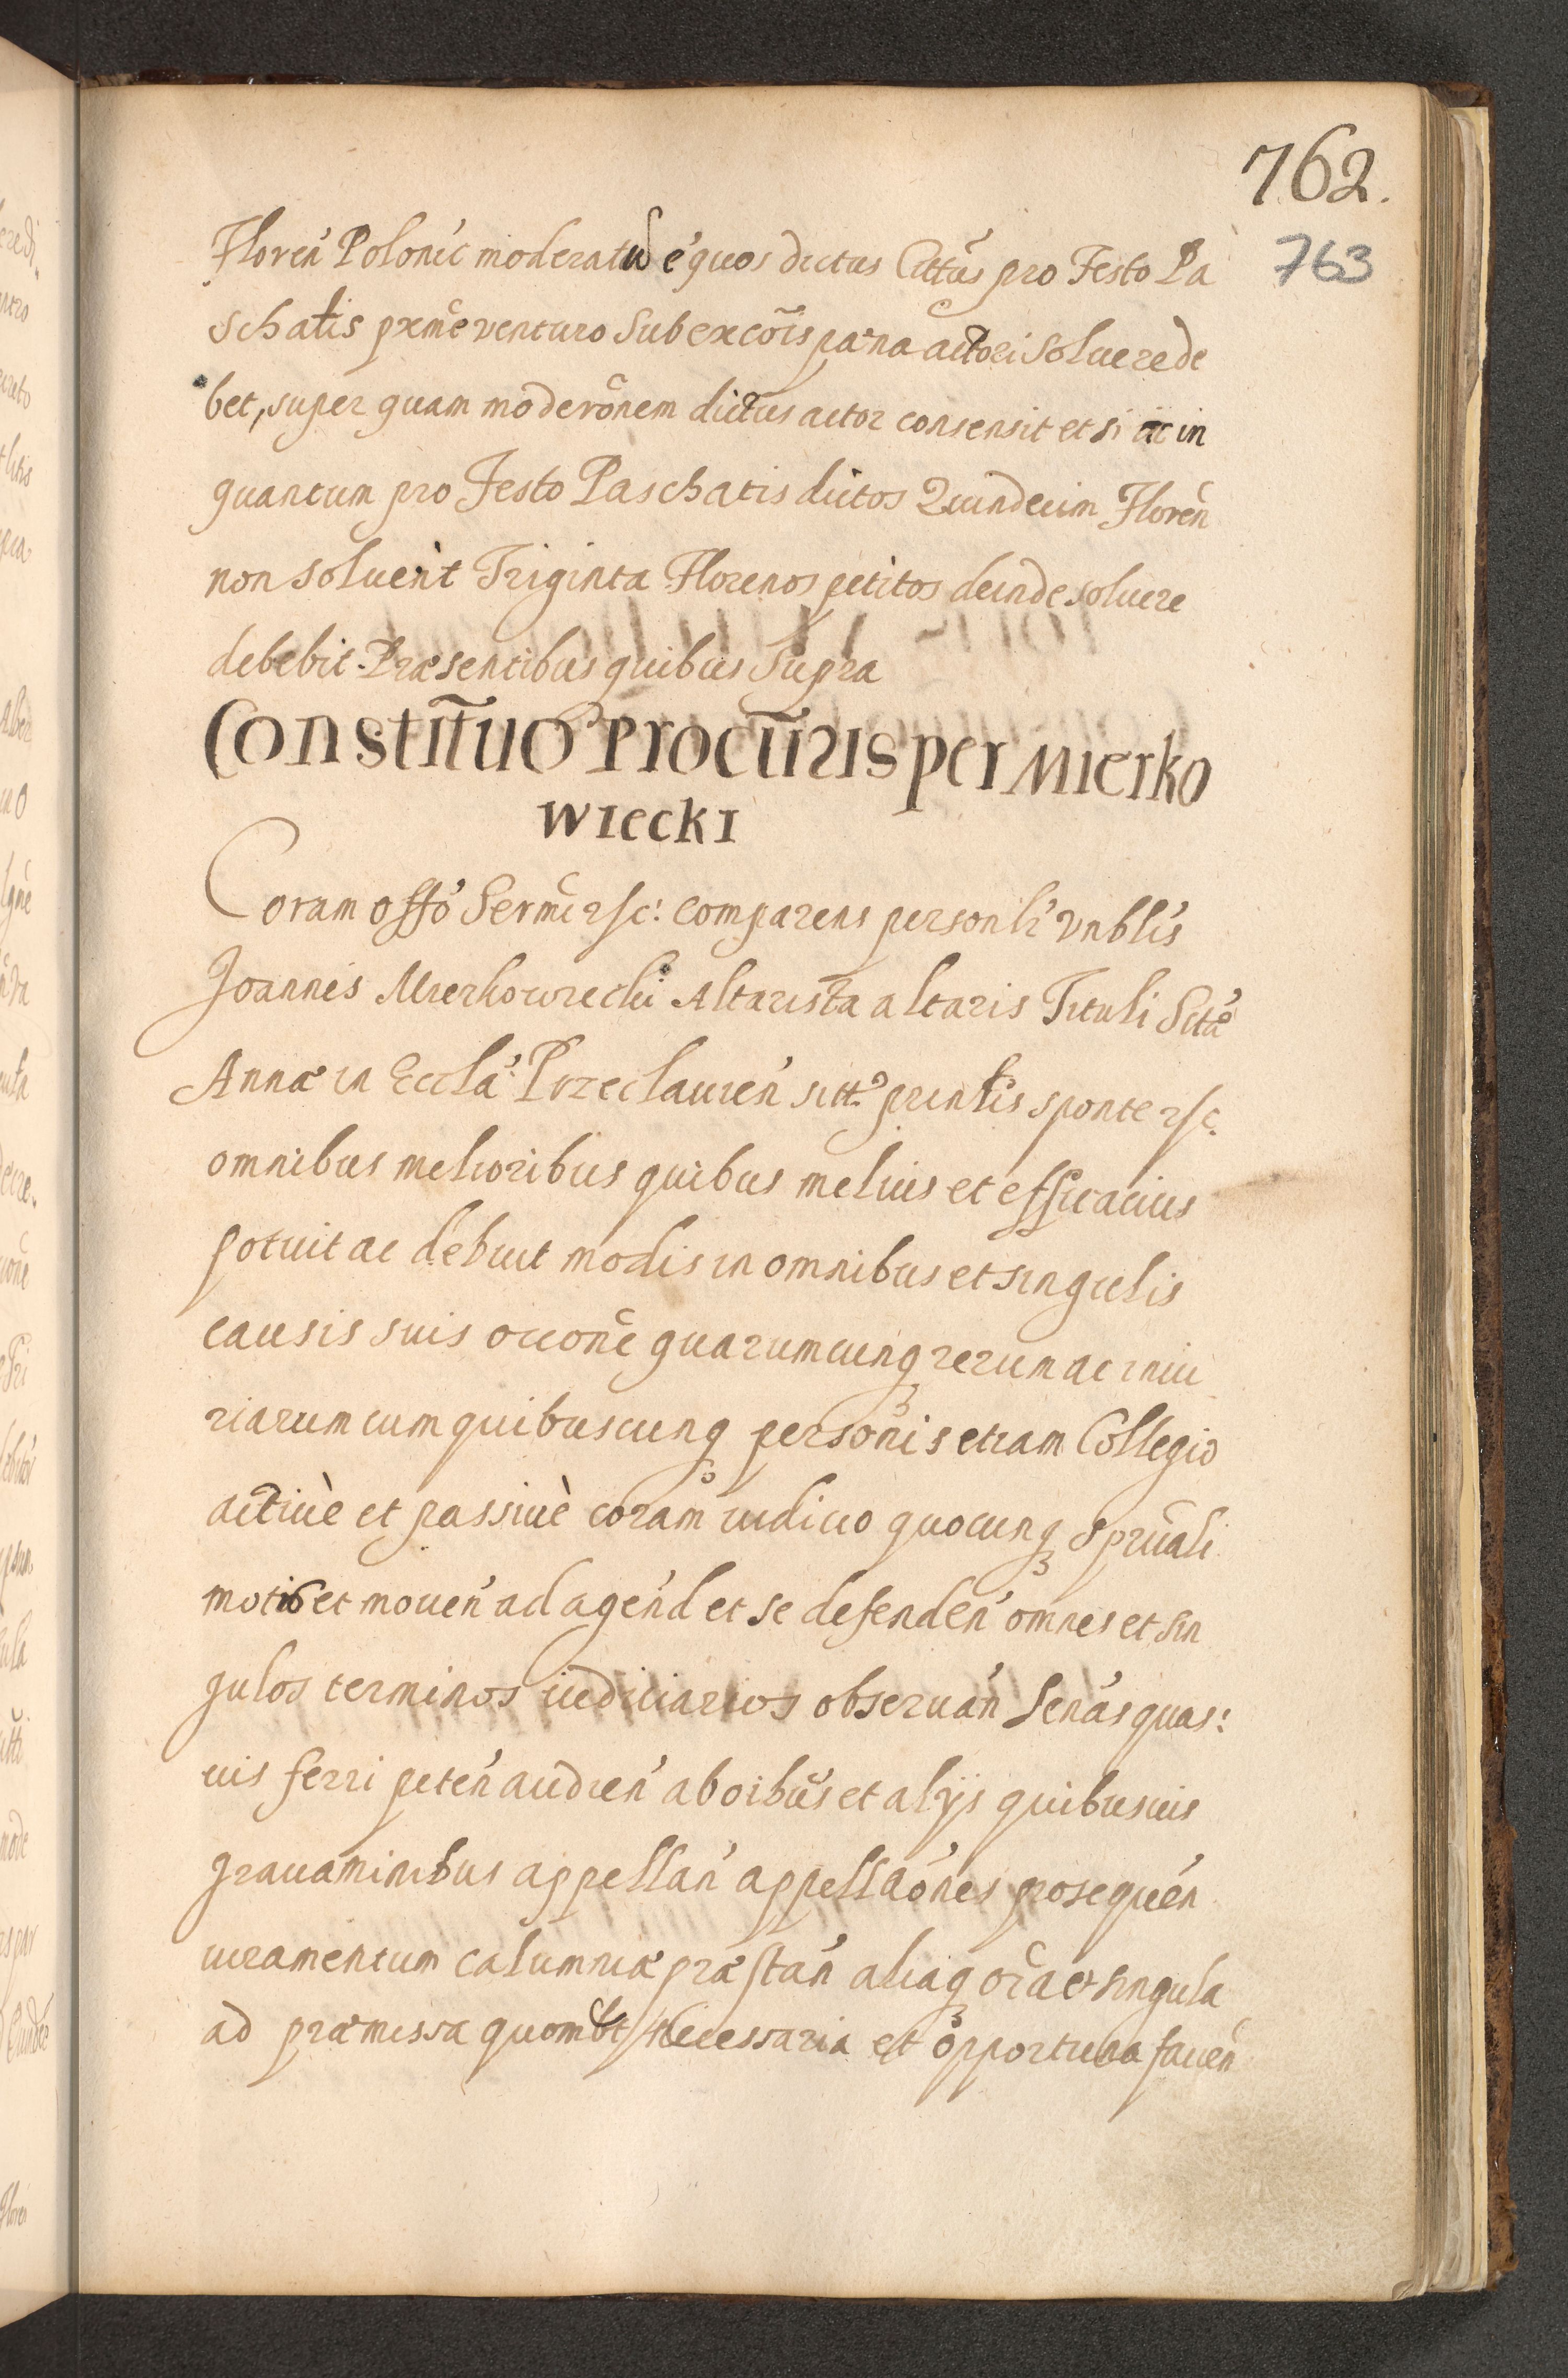 762.
763
Floreń Polonić moderatū é quos dictus Cittūs pro Festo Pa
schatis pxmē venturo Sub excōīs pæna actori soluere de
bet, super quam moderōnem dictus actor consensit et si in
quantum pro Festo Paschatis dictos Quindecim Floreñ
non soluerit Triginta Florenos petitos deinde soluere
debebit. Præsentibus quibus Supra
Constītuo Procūris per Mierko
wiecki
Coram offō Sermē rsc: comparens personlr vnblis
Joannes Mierkowiecki Altarista altaris Tituli Sctæ
Annæ in Ecclá Przeclauień sitt. prinlis sponte rsc.
omnibus melioribus quibus melius et efficacius
potuit ac debuit modis in omnibus et singulis
causis suis occone quarumcunq rerum ac iniu
riarum cum quibuscunq personis etiam Collegio
actiuè et passiuè coram iudicio quocunq spruali
motis et moueń ad agend et se defendeń omnes et sin
gulos terminos iudiciarios obseruań senas quas:
uis ferri peteń audień ab oibus et alijs quibusuis
grauaminibus appellań appellaónes prosequeń
iuramentum calumniæ præstań aliaq oīa et singula
ad præmissa quomlt necessaria et opportuna facień